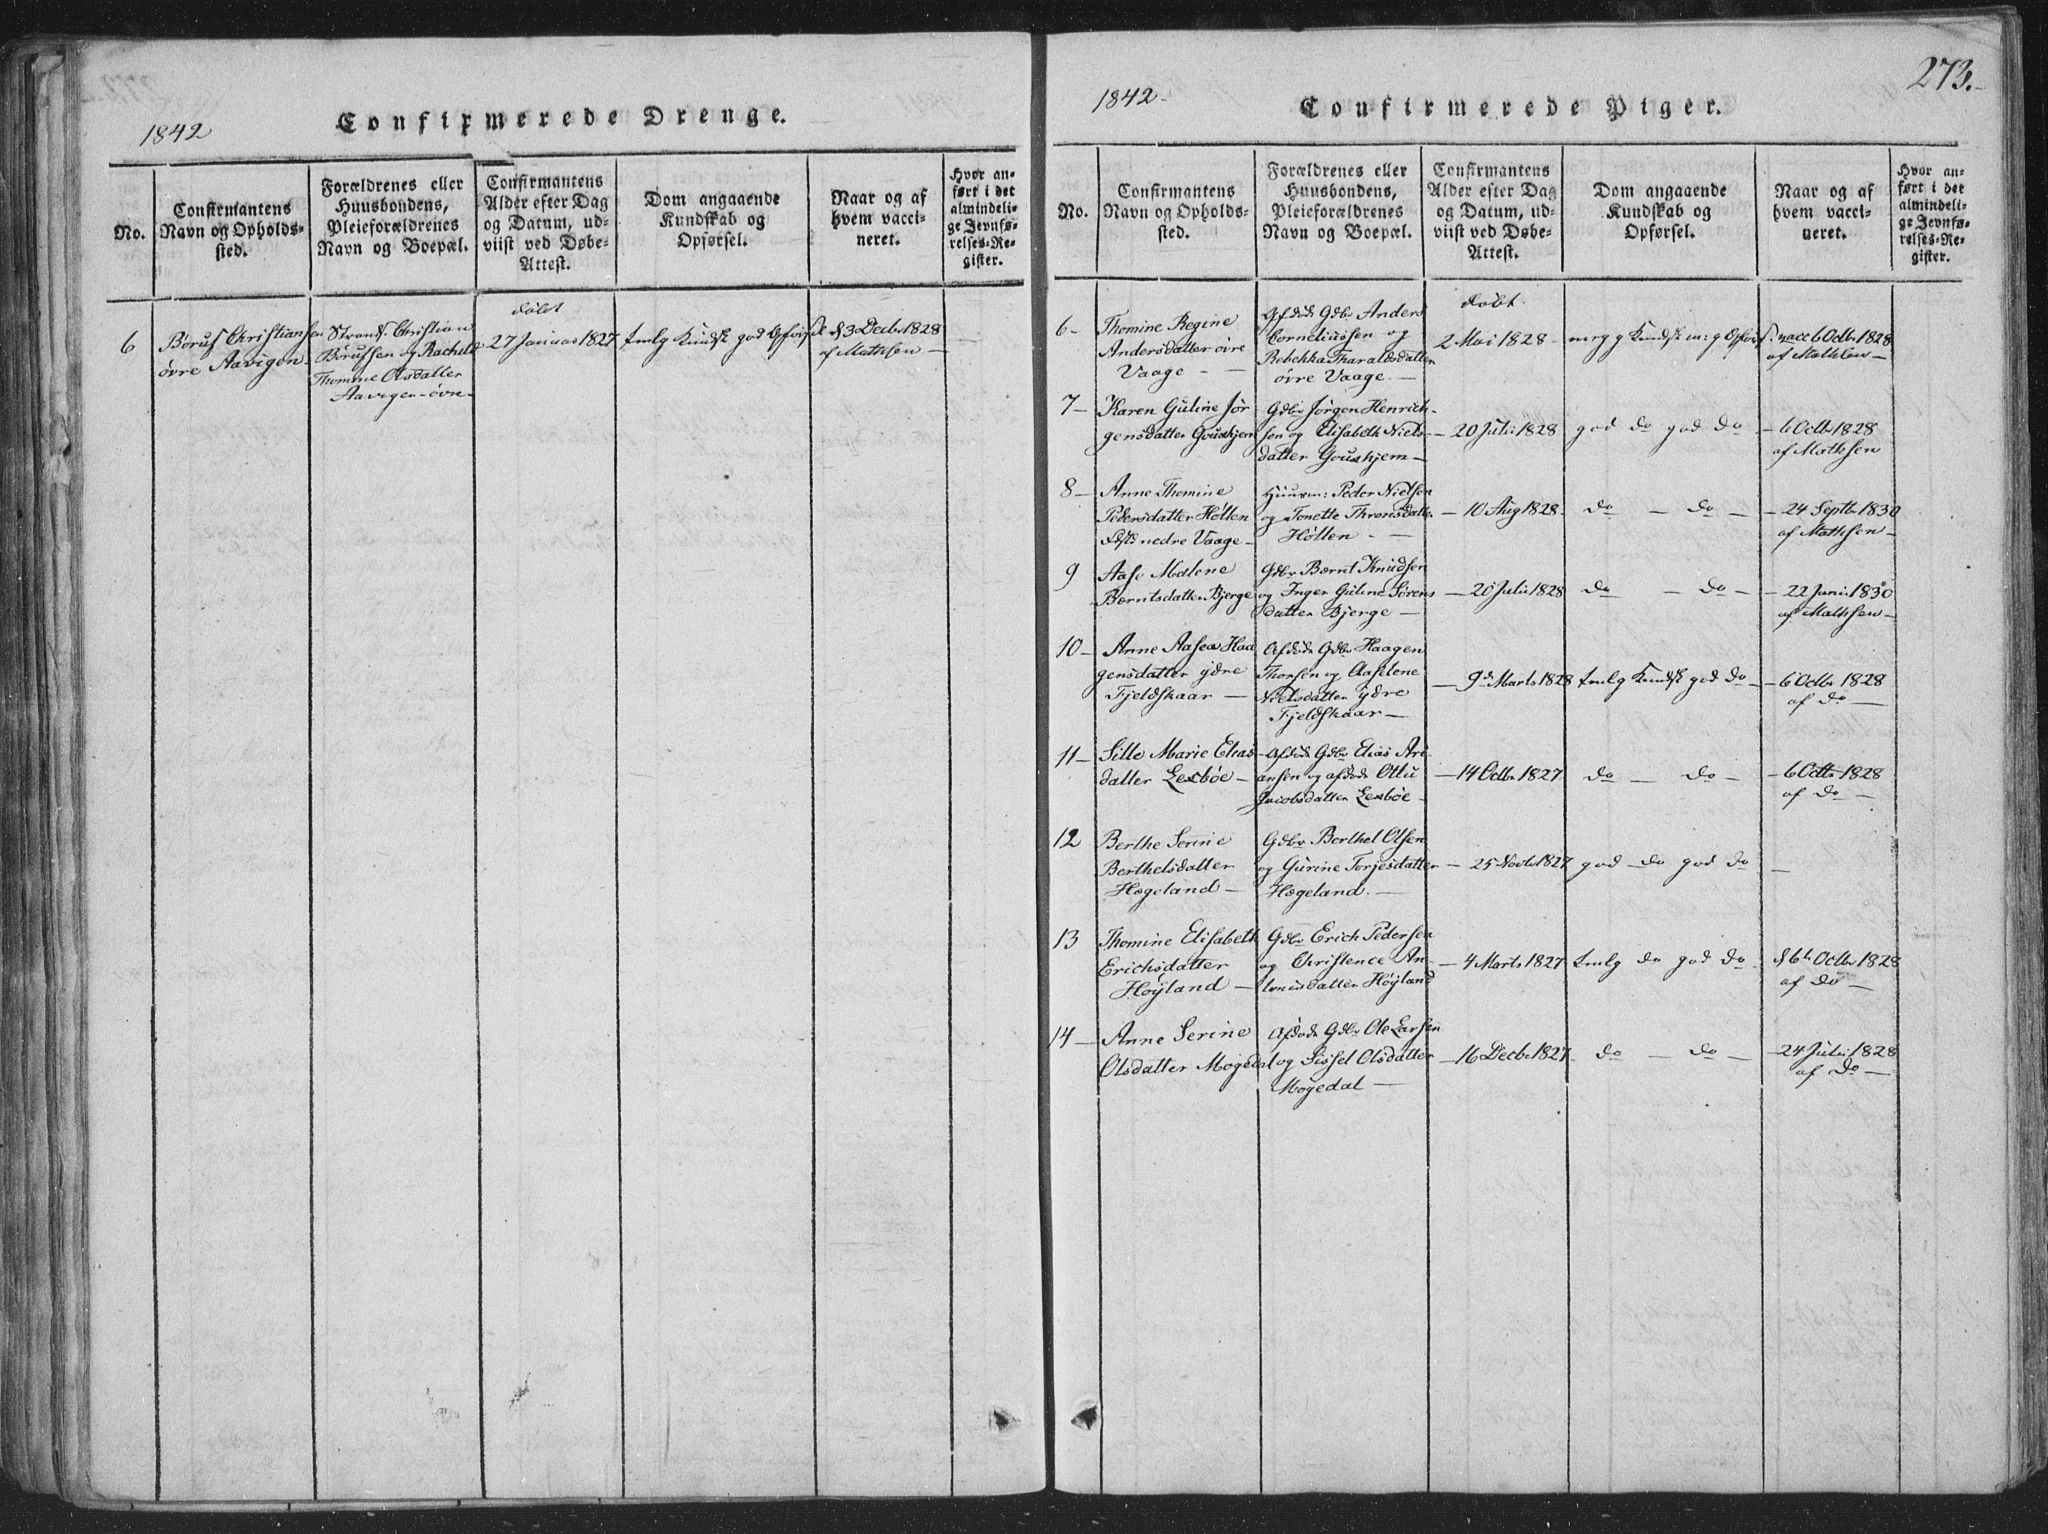 1842
Confirmerede Drenge.
No.
Confirmantens
Navn og Opholds-
sted.
Forældrenes eller
Huusbondens,
Pleieforældrenes
Navn og Boepæl.
Confirmantens
Alder efter Dag
og Datum, ud-
viist ved Døbe-
Attest.
Dom angaaende
Kundskab og
Opførsel.
Naar og af
hvem vacci-
neret.
Hvor an-
ført i det
almindeli-
ge Jevnfø-
relses-Re-
gister.
6
Børuf Christiansen
øvre Aavigen
Strands. Christian
Børufsen og Rachel
Thomine Olsdatter
Aavigen øvre
døbt
27 Januar 1827
tmlg Kundsk god Opførsel
d 3 Decbr 1828
af Mathsen
273.
1842
Confirmerede Piger.
No.
Confirmantens
Navn og Opholds-
sted.
Forældrenes eller
Huusbondens,
Pleieforældrenes
Navn og Boepæl.
Confirmantens
Alder efter Dag
og Datum, ud-
viist ved Døbe-
Attest.
Dom angaaende
Kundskab og
Opførsel.
Naar og af
hvem vacci-
neret.
Hvor an-
ført i det
almindeli-
ge Jevnfø-
relses-Re-
gister.
6
Thomine Regine
Andersdatter øvre
Vaage
Afdøde Gdbr Anders
Corneliussen og
Bebekka Tharaldsdatter
øvre Vaage
døbt
2 Mai 1828
vacc 6 Octbr 1828
af Mathsen
7
Karen Guline Jør
gensdatter Gouskjem
Gdbr Jørgen Henrich-
sen og Elisabeth Niels-
datter Gouskjem
20 Juli 1828
god do god do
6 Octbr 1828
af Mathsen
8
Anne Thomine
Pedersdatter Hølten
nedre Vaage
Huusm: Peder Nielsen
og Tonette Thronsdatter
Hølten
10 Aug 1828
do do
24 Septbr 1830
af Mathsen
9
Aase Malene
Berntsdatter Bjerge
Gdbr Bærnt Knudsen
og Inger Guline Sørens
datter Bjerge
20 Juli 1828
do do
22 Juni 1830
af Mathsen
10
Anne Aasea Haa
gensdatter ydre
Fjeldskaar
Afdøde Gdbr Haagen
Thorsen og Aaselene
Nielsdatter ydre
Fjeldskaar
9d Marts 1828
tmlg Kundsk god do
6 Octbr 1828
af do
11
Sille Marie Elias
datter Lexbøe
Afdøde Gdbr Elias Ari-
ansen og afdøde Ottu
Jacobsdatter Lexbøe
14 Octbr 1827
do do
6 Octbr 1828
af do
12
Berthe Serine
Berthelsdatter
Hægeland
Gdbr Berthel Olsen
og Gurine Torjesdatter
Hægeland
25 Novbr 1827
god do god do
13
Thomine Elisabeth
Erichsdatter
Høyland
Gdbr Erich Pedersen
og Christence An-
tonisdatter Høyland
4 Marts 1827
tmlg do god do
d 6te Octbr 1828
af do
14
Anne Serine
Olsdatter Møgedal
Afdøde Gdbr Ole Larsen
og Sissel Olsdatter
Møgedal
16 Decbr 1827
do do
24 Juli 1828
af do